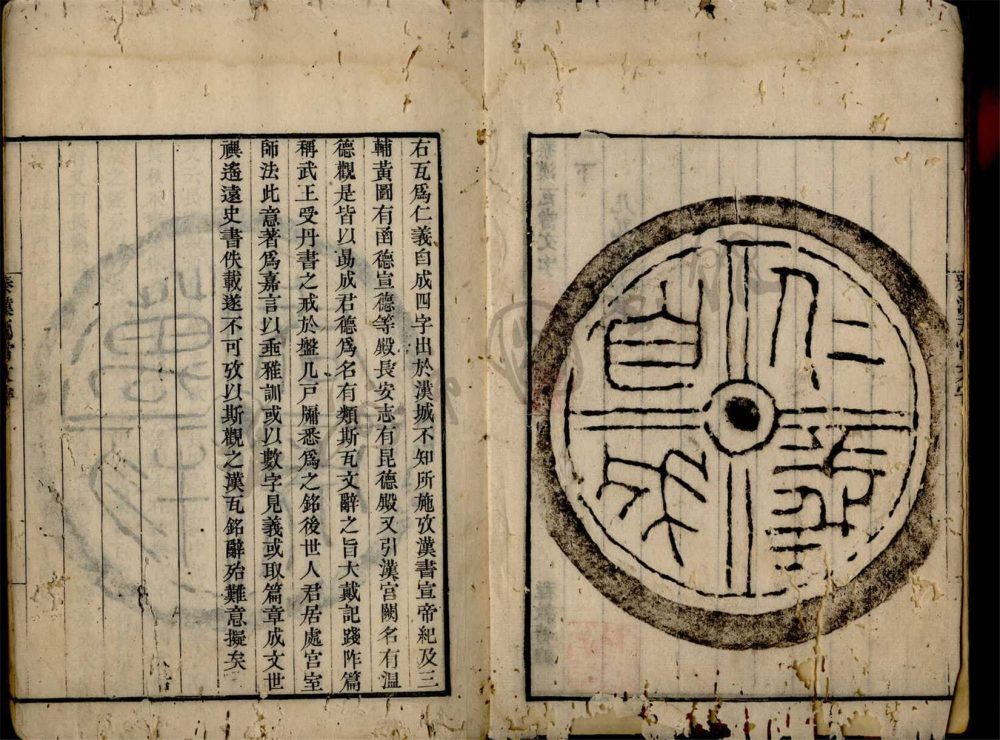 仁義
自成
右瓦爲仁義自成四字出於漢城不知所施攷漢書宣帝紀及三
輔黃圖有函德宣德等殿長安志有昆德殿又引漢宫闕名有温
德觀是皆以勗成君德爲名有類斯瓦文辭之旨大戴記踐阼篇
稱武王受丹書之戒於盤几戸牖悉爲之銘後世人君居處宫室
師法此意著爲嘉言以埀雅訓或以數字見義或取篇章成文世
禩遙遠史書佚載遂不可攷以斯觀之漢瓦銘辭殆難意擬矣